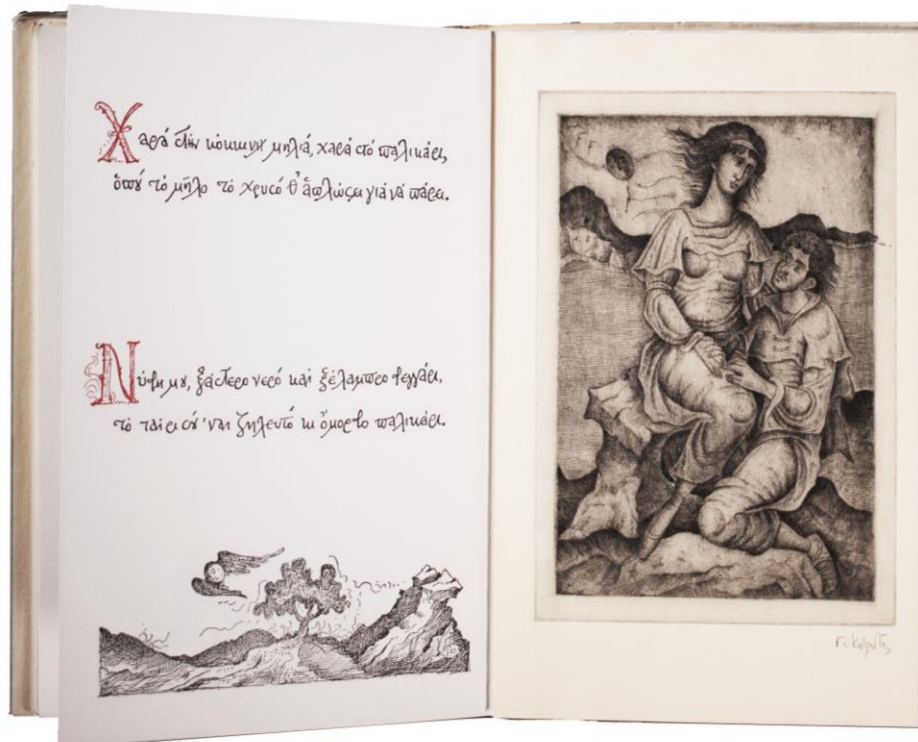 Χαρά στὴν κόκκινη μηλιά, χαρά στό παλικάρι,
ὅπου τὸ μῆλο τὸ χρυσό θ᾽ ἁπλώσει γιά νά πάρει.
Νύφη μου, ξάστερο νερό καί ξέλαμπρο φεγγάρι,
τὸ ταίρι σού ᾽ναι ζηλευτό κι ὄμορφο παλικάρι.